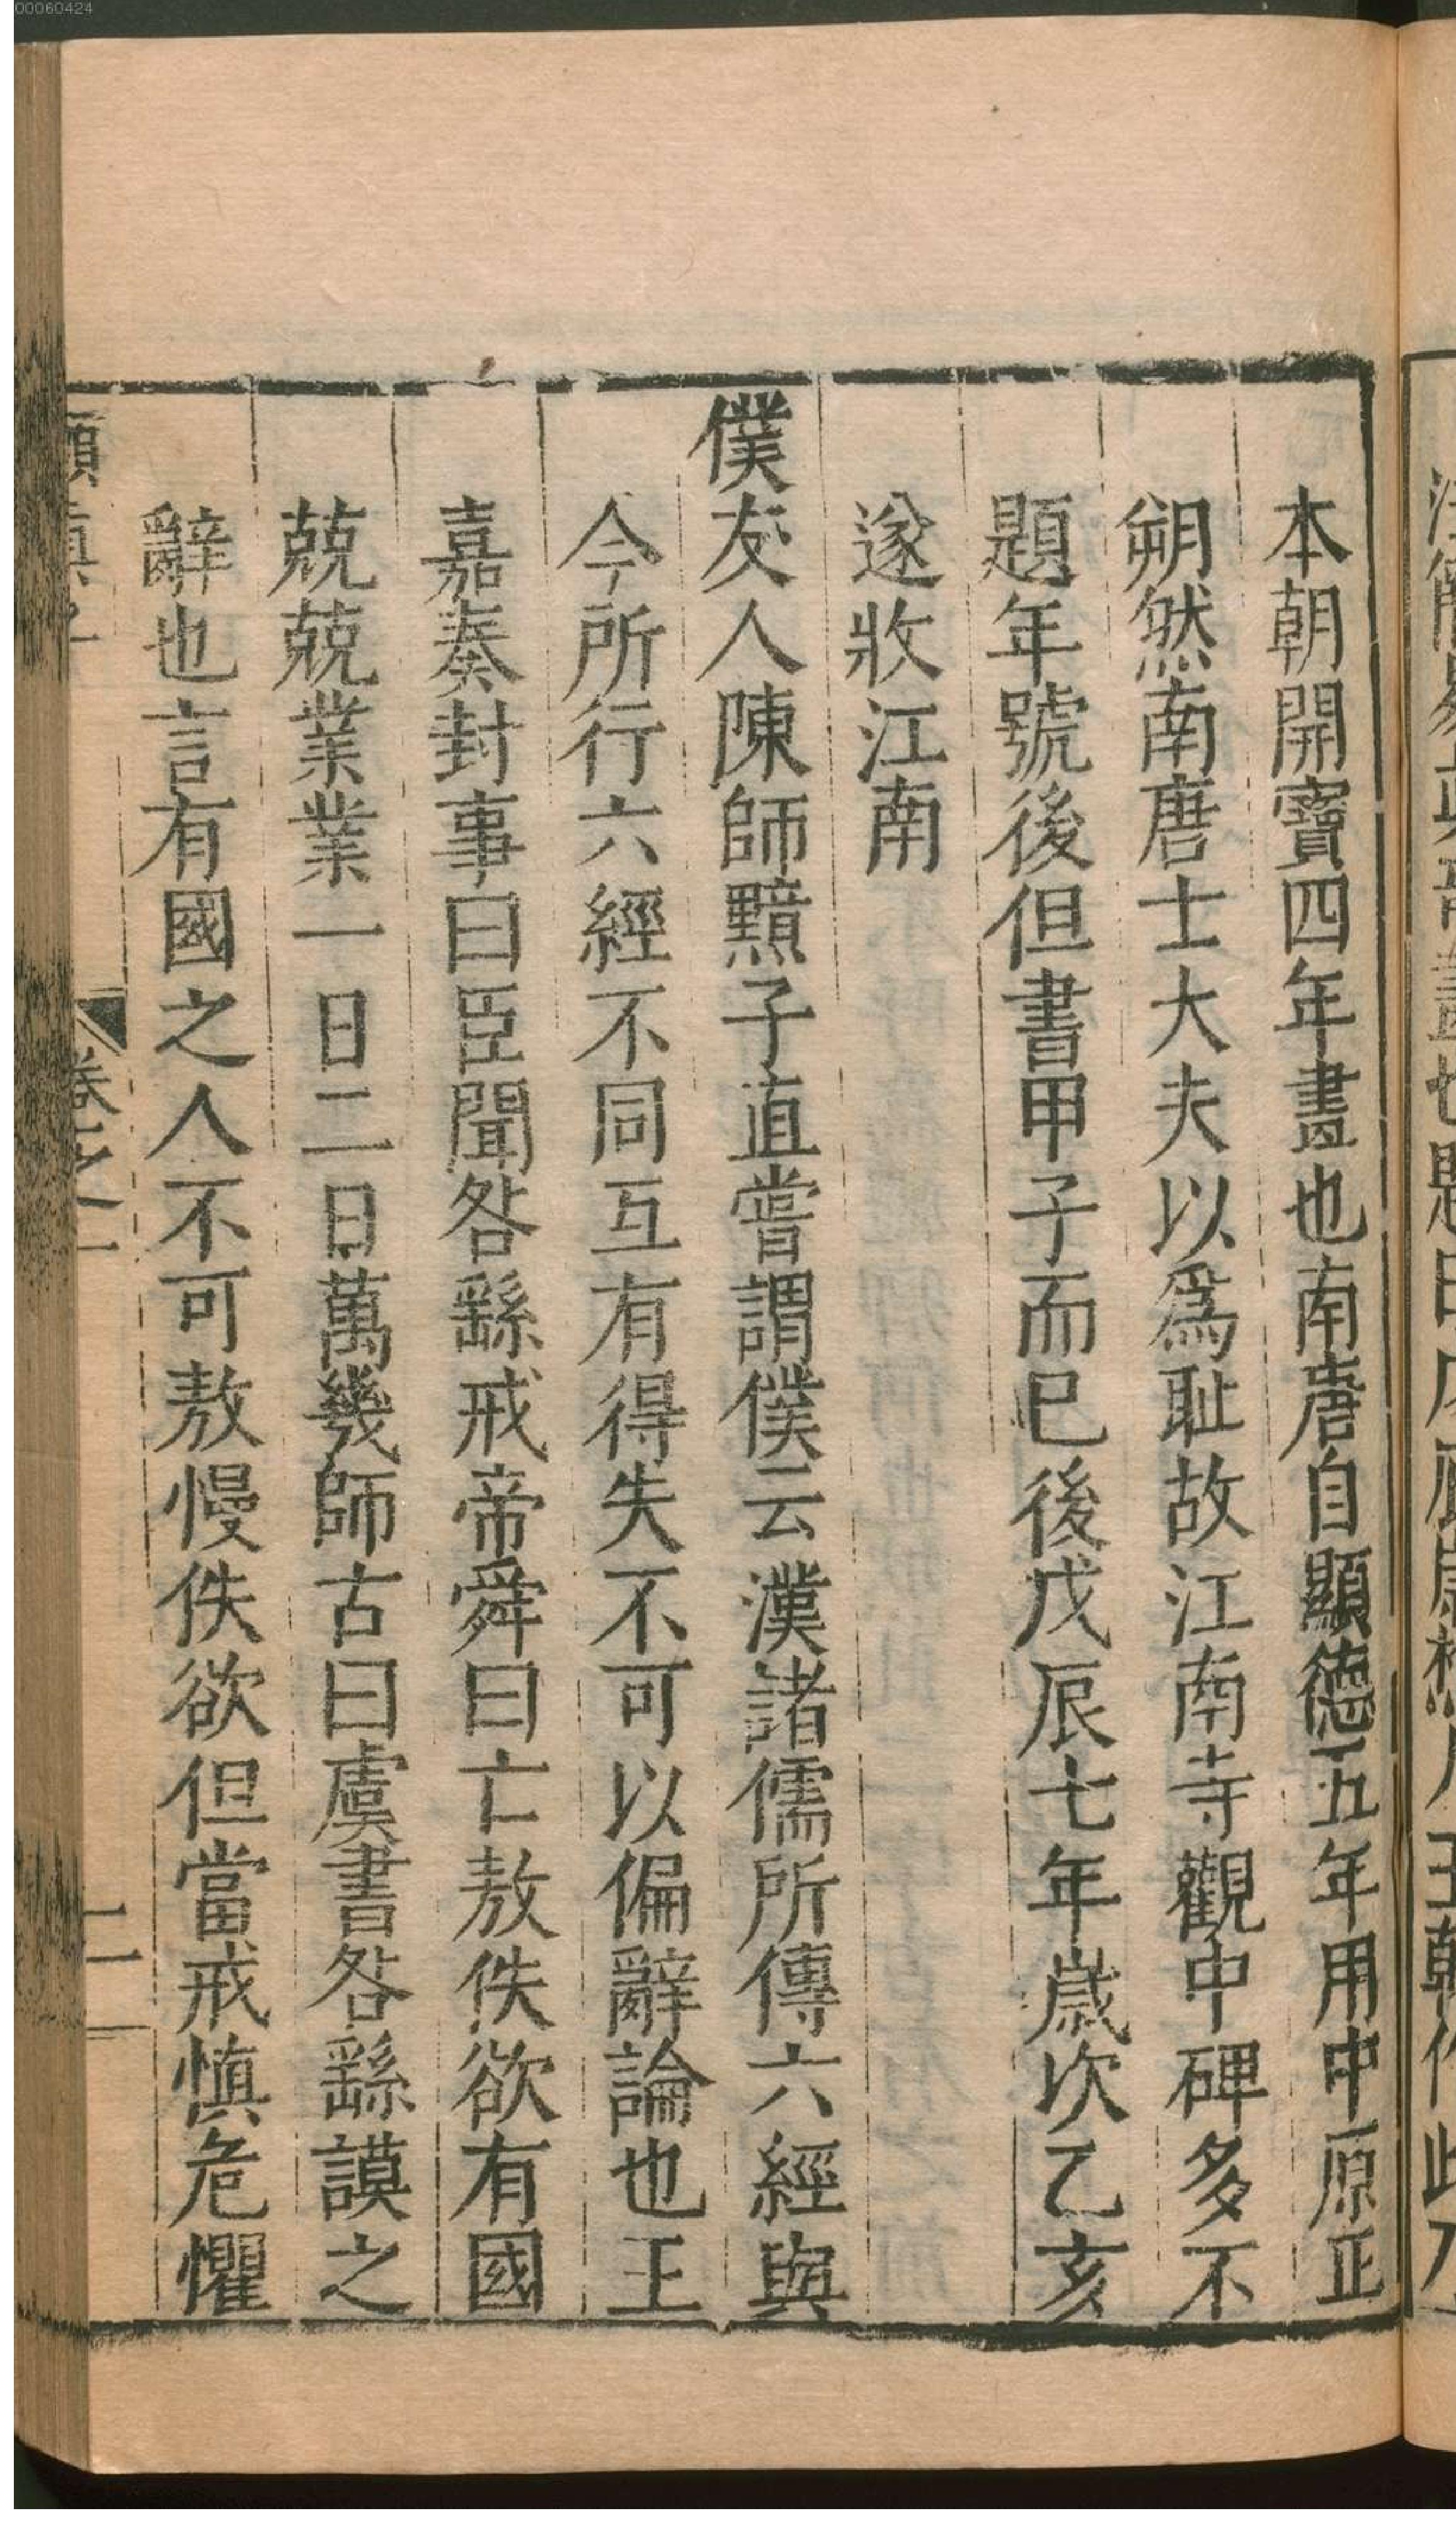 00060424
本朝開寶四年書也南唐自顯德五年用中原正
朔然南唐士大夫以爲耻故江南寺觀中碑多不
題年號後但書甲子而已後戊辰七年歲次乙亥
遂收江南
僕友人陳師黯子直嘗謂僕云漢諸儒所傳六經與
今所行六經不同互有得失不可以偏辭論也王
嘉奏封事曰臣聞咎繇戒帝舜曰亡敖佚欲有國
兢兢業業一日二日萬幾師古曰虞書咎繇謨之
辭也言有國之人不可敖慢佚欲但當戒慎危懼
卷之一
二